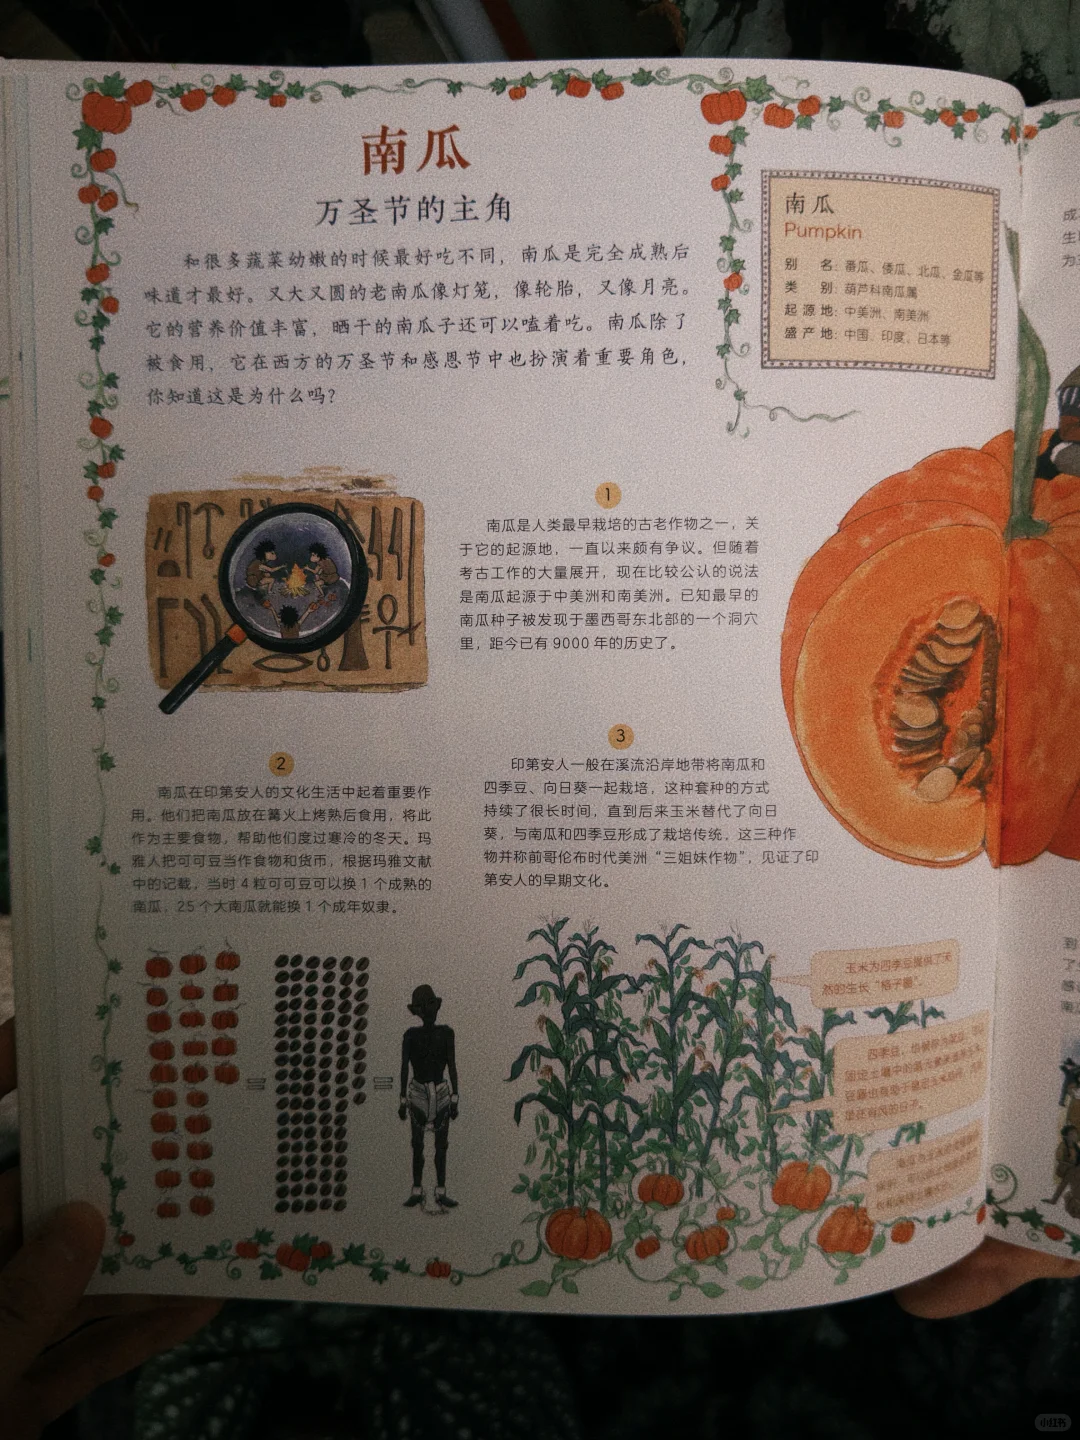 南瓜
万圣节的主角
和很多蔬菜幼嫩的时候最好吃不同，南瓜是完全成熟后
味道才最好。又大又圆的老南瓜像灯笼，像轮胎，又像月亮。
它的营养价值丰富，晒干的南瓜子还可以嗑着吃。南瓜除了
被食用，它在西方的万圣节和感恩节中也扮演着重要角色，
你知道这是为什么吗？
南瓜
Pumpkin
别　名：番瓜、倭瓜、北瓜、金瓜等
类　别：葫芦科南瓜属
起源地：中美洲、南美洲
盛产地：中国、印度、日本等
1
南瓜是人类最早栽培的古老作物之一，关
于它的起源地，一直以来颇有争议。但随着
考古工作的大量展开，现在比较公认的说法
是南瓜起源于中美洲和南美洲。已知最早的
南瓜种子被发现于墨西哥东北部的一个洞穴
里，距今已有 9000 年的历史了。
2
南瓜在印第安人的文化生活中起着重要作
用。他们把南瓜放在篝火上烤熟后食用，将此
作为主要食物，帮助他们度过寒冷的冬天。玛
雅人把可可豆当作食物和货币，根据玛雅文献
中的记载，当时 4 粒可可豆可以换 1 个成熟的
南瓜，25 个大南瓜就能换 1 个成年奴隶。
3
印第安人一般在溪流沿岸地带将南瓜和
四季豆、向日葵一起栽培，这种套种的方式
持续了很长时间，直到后来玉米替代了向日
葵，与南瓜和四季豆形成了栽培传统，这三种作
物并称前哥伦布时代美洲“三姐妹作物”，见证了印
第安人的早期文化。
玉米为四季豆提供了天
然的生长“格子架”。
小红书